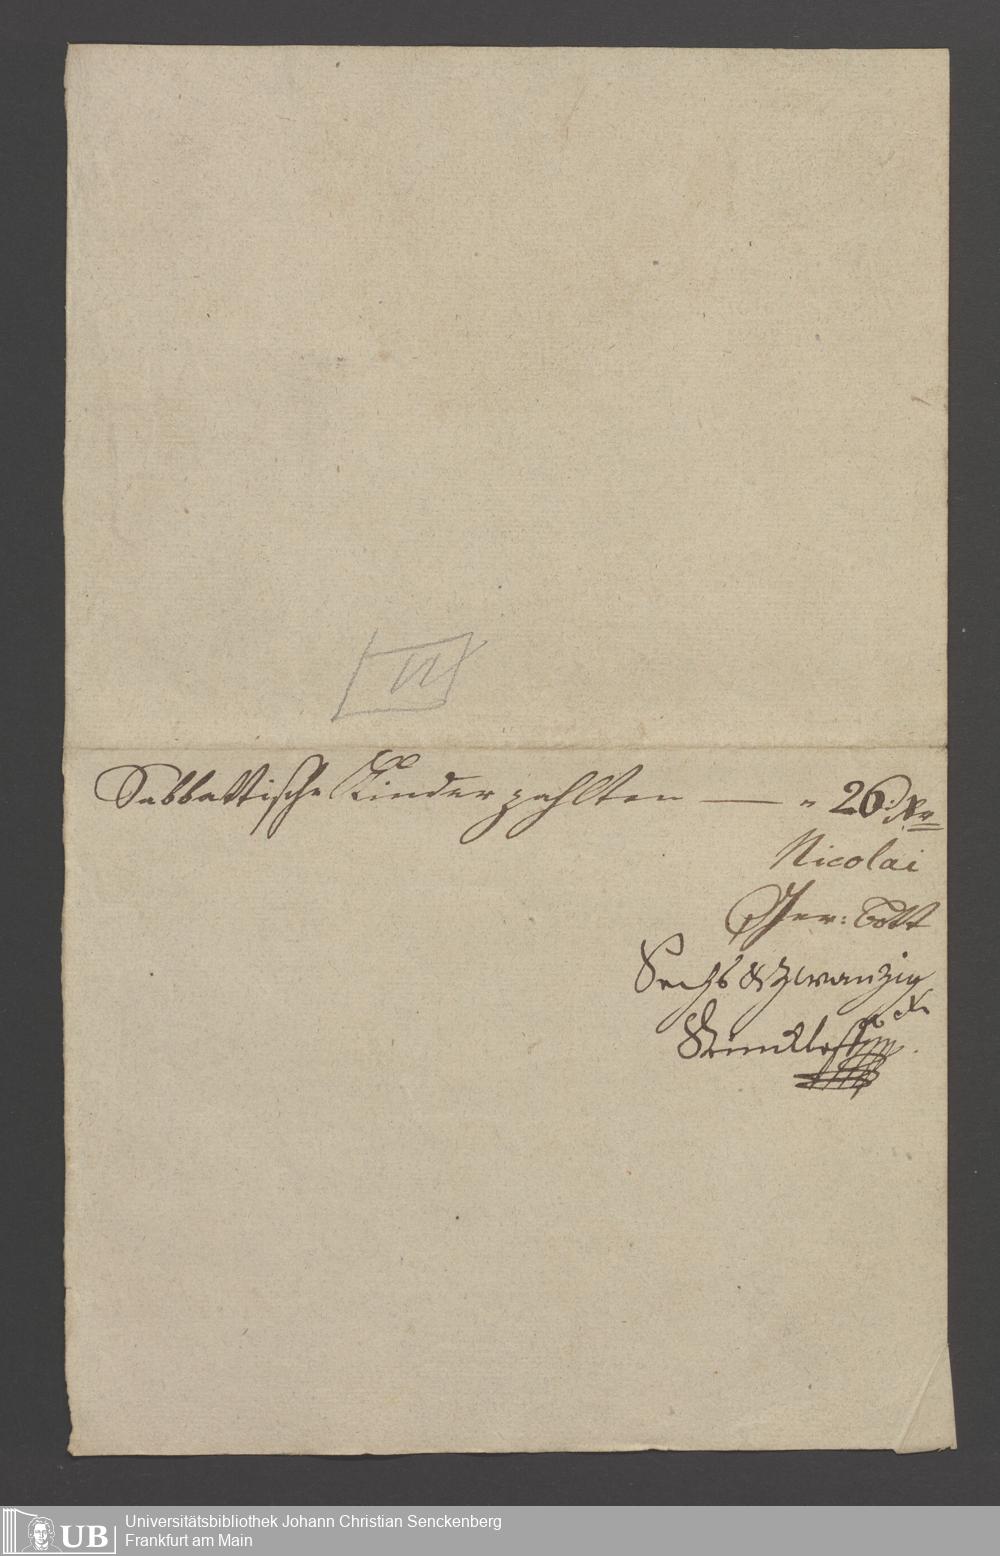 VI
Sabbattische Kinder zahlten — " 26. Xr
Nicolai
Ger: Bott
Sechs & zwanzig Xr
UB
Universitätsbibliothek Johann Christian Senckenberg
Frankfurt am Main